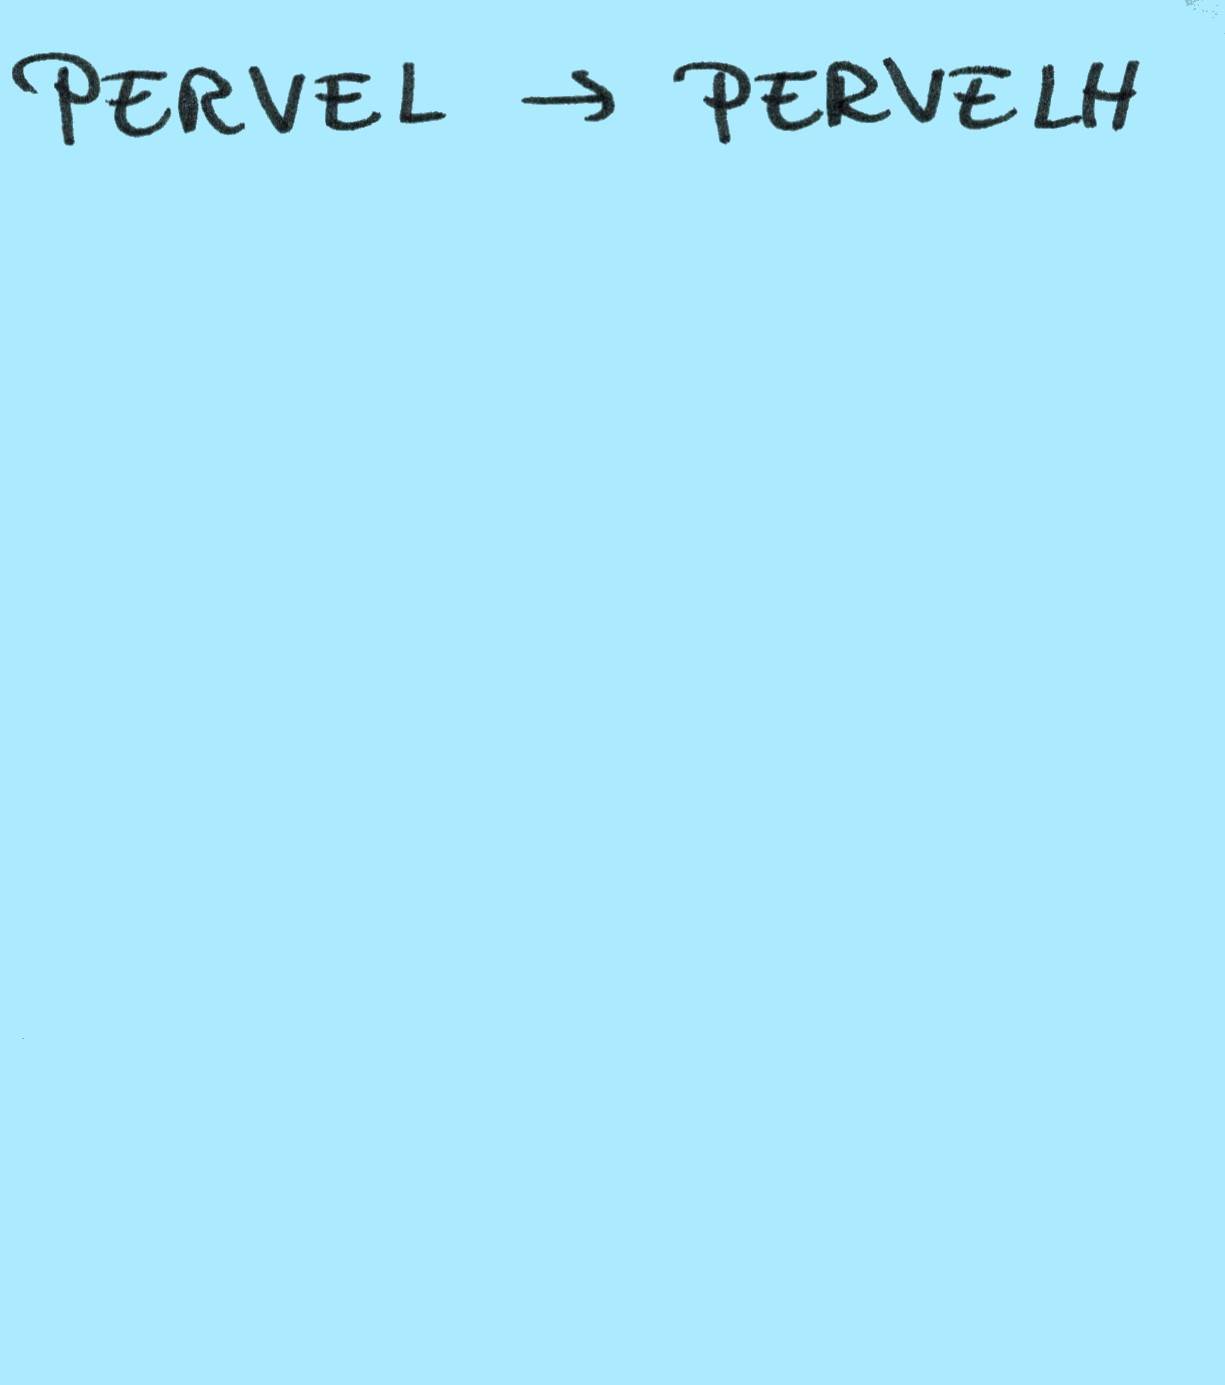 PERVEL → PERVELH